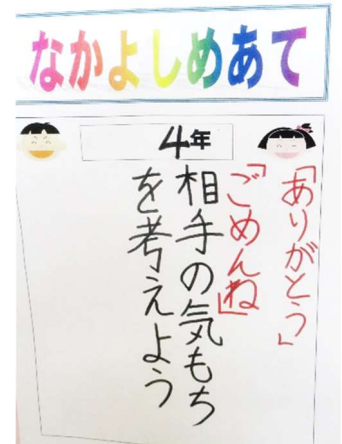 なかよしめあて
4年
「ありがとう」
「ごめんね」
相手の気もち
を考えよう